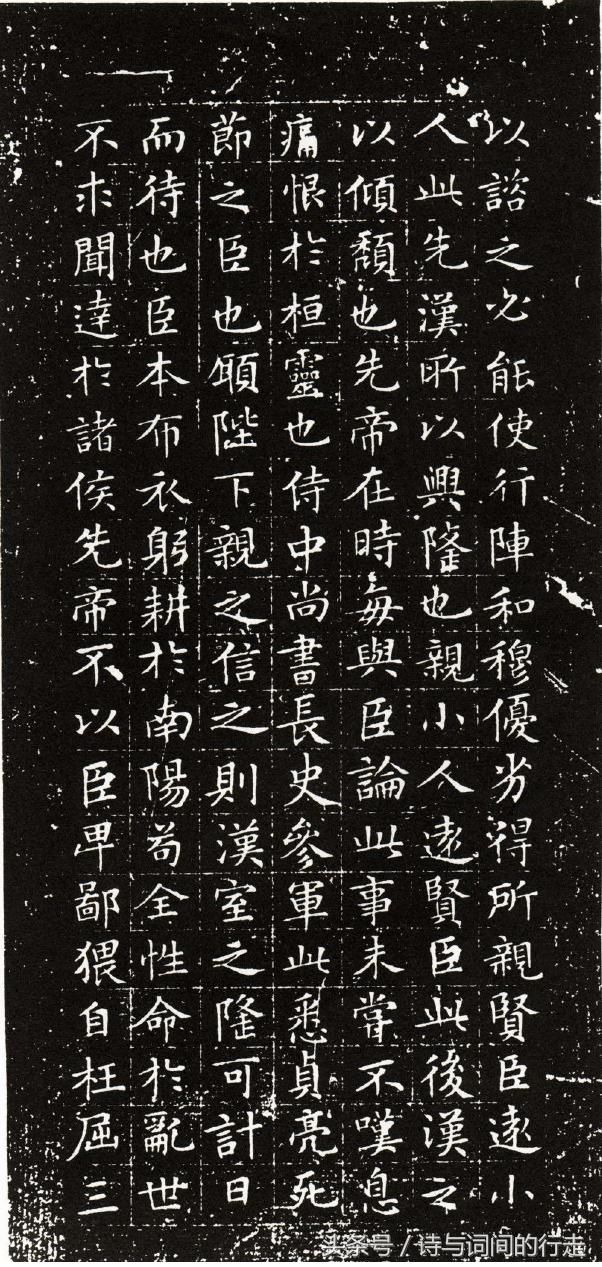 以諮之必能使行陣和穆優劣得所親賢臣遠小
人此先漢所以興隆也親小人遠賢臣此後漢之
以傾頹也先帝在時每與臣論此事未嘗不嘆息
痛恨於桓靈也侍中尚書長史參軍此悉貞亮死
節之臣也願陛下親之信之則漢室之隆可計日
而待也臣本布衣躬耕於南陽苟全性命於亂世
不求聞達於諸侯先帝不以臣卑鄙猥自枉屈三
头条号 / 诗与词间的行走